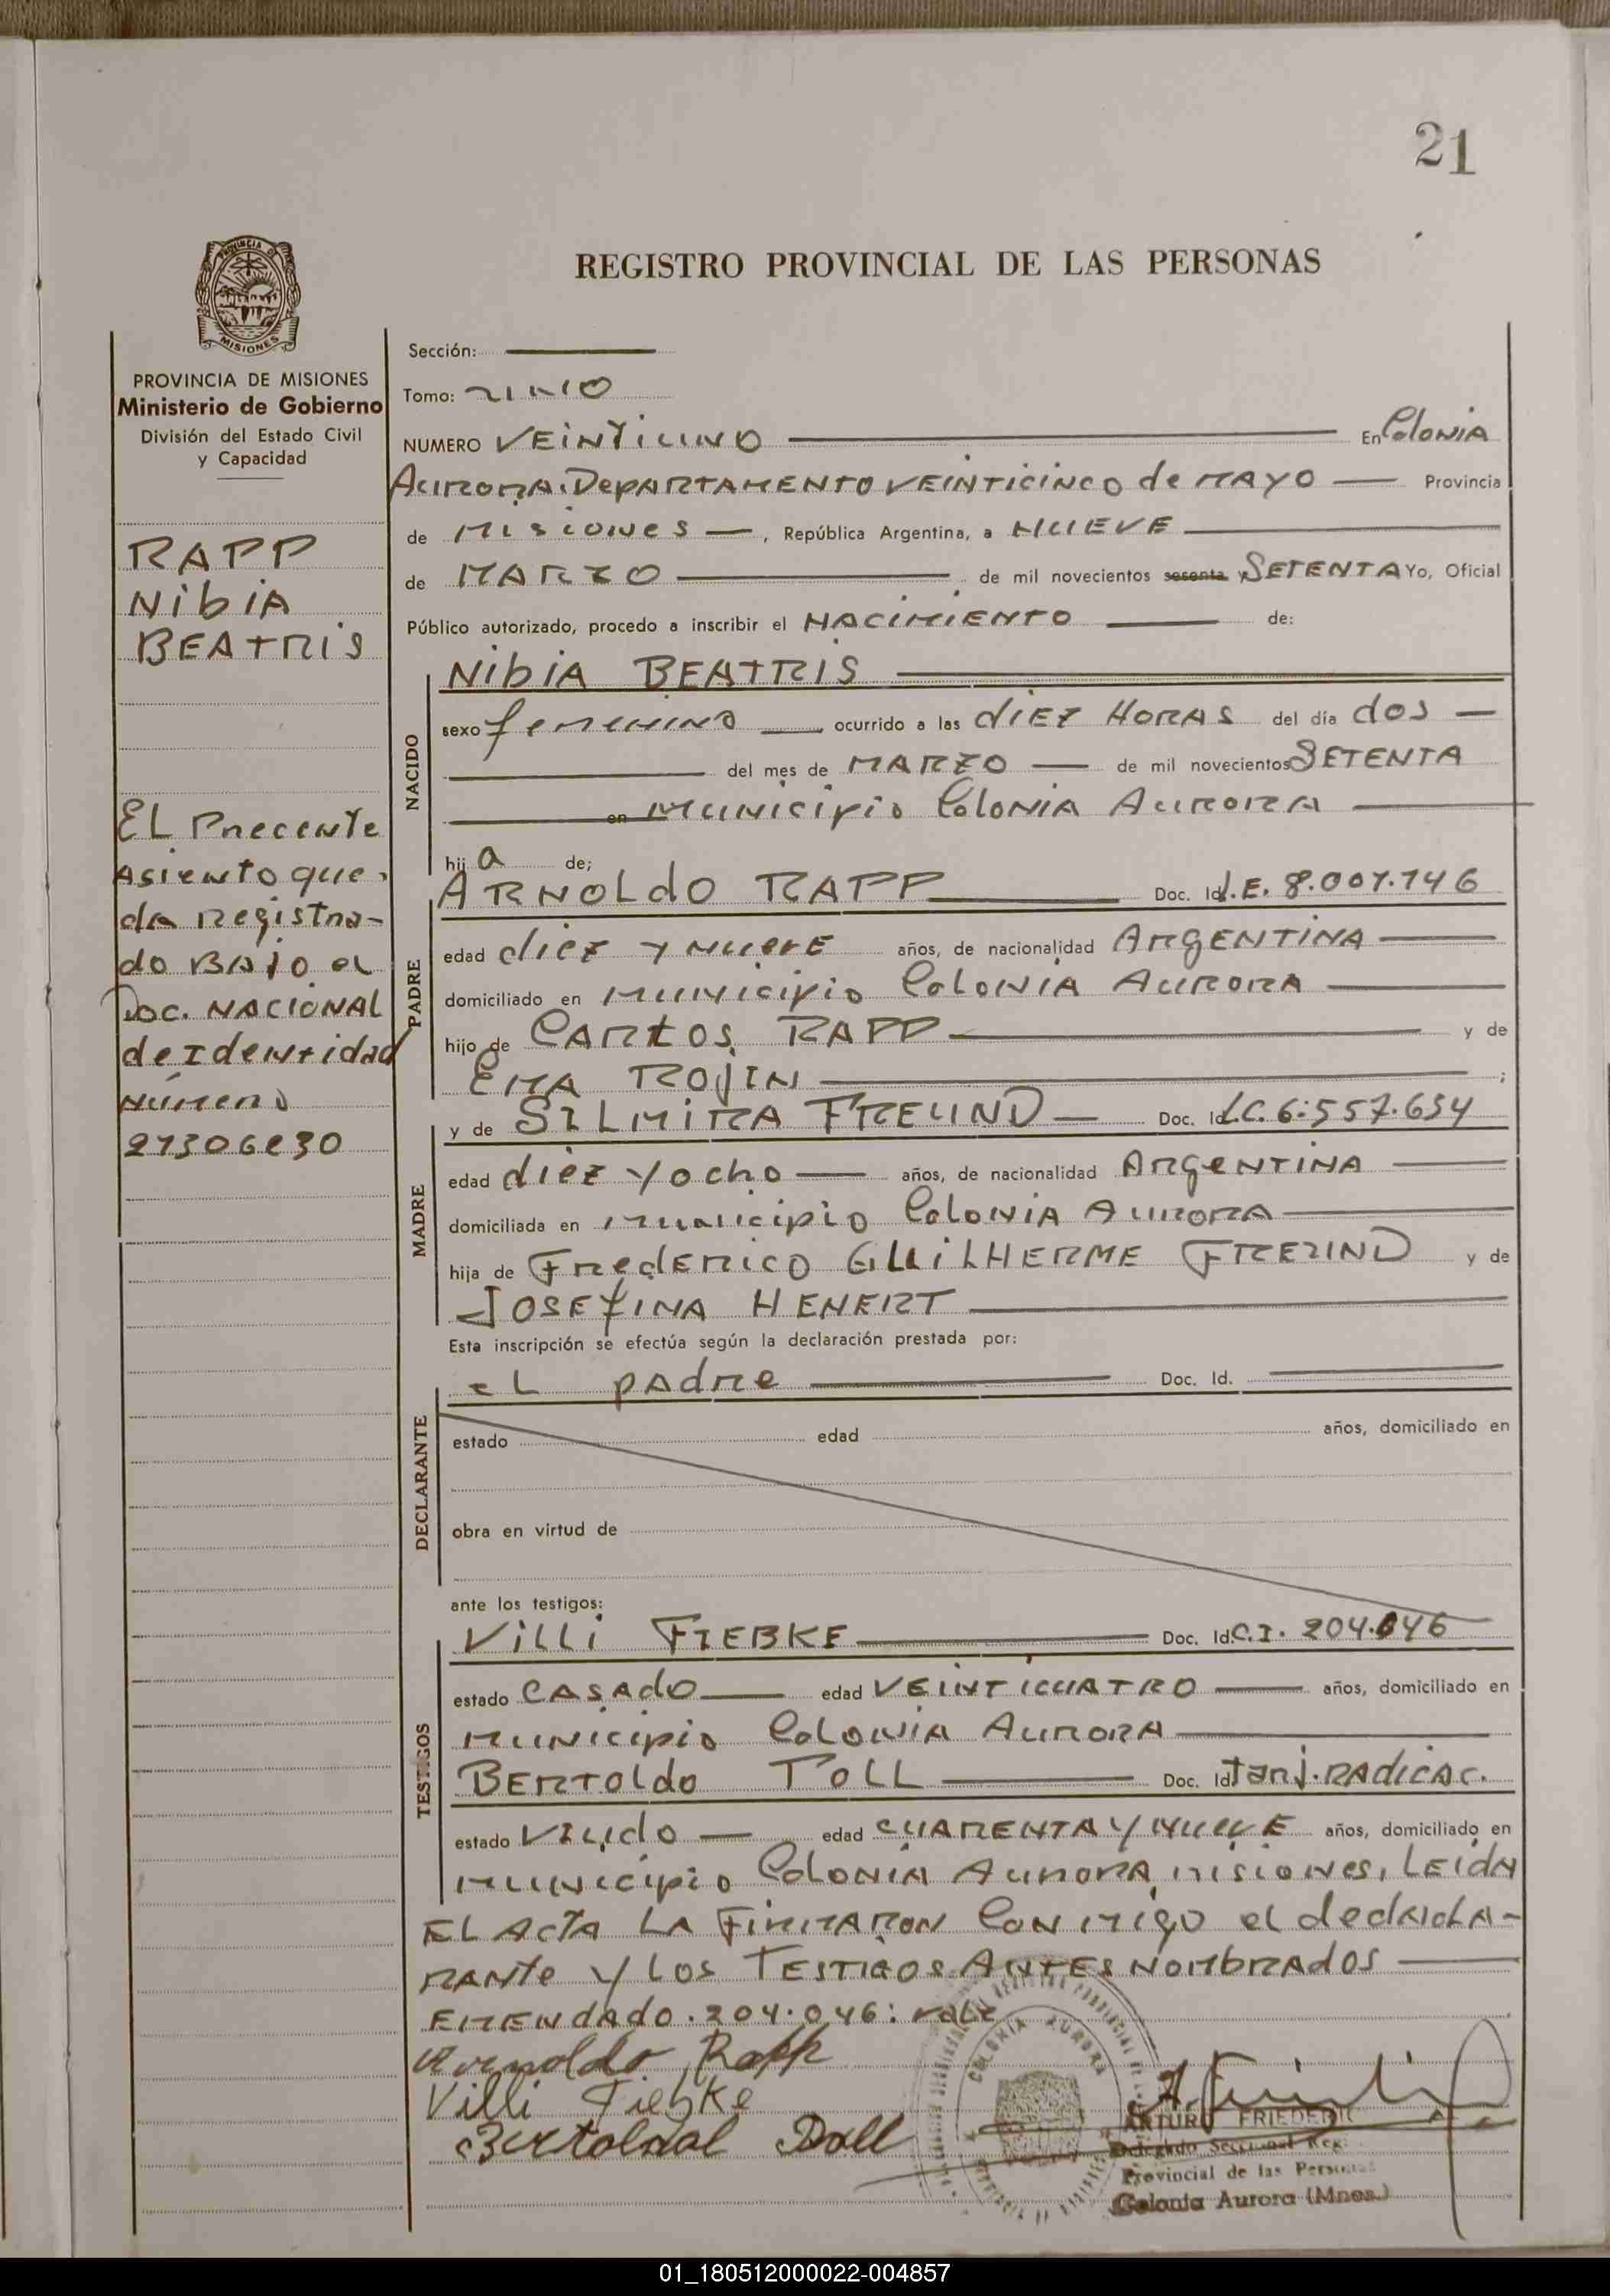 21
REGISTRO PROVINCIAL DE LAS PERSONAS
MISIONES
PROVINCIA DE MISIONES
Ministerio de Gobierno
División del Estado Civil
y Capacidad
RAPP
NibiA
BEATRiS
EL Precente
Asiento que-
da Registra-
do BAjo el
Doc. NACIONAL
de Identidad
Número
Sección:
Tomo: UNO
NUMERO VEiNTiUNO En Colonia
AURORA. DepARTAMENTO VEINTICINCO de MAYO Provincia
de MisioNes, República Argentina, a NUEVE
de MARZO de mil novecientos sesenta y SETENTA Yo, Oficial
Público autorizado, procedo a inscribir el NACIMIENTO de:
NACIDO
NibiA BEATRIS
sexo femenino ocurrido a las diEZ HORAS del día dos
del mes de MARZO de mil novecientos SETENTA
en Municipio Colonia AURORA
hij a de;
PADRE
ARNOLdO RAPP Doc. Id L.E. 8.007.746
edad diez y nueve años, de nacionalidad ARgENTINA
domiciliado en Municipio Colonia AURORA
hijo de CARLOS RAPP y de
EMA ROJIN ;
MADRE
y de SILMIRA FREUND Doc. Id L.C. 6.557.654
edad diez y ocho años, de nacionalidad ARgeNTINA
domiciliada en Municipio Colonia AURORA
hija de FRedERico GUiLHERME FREUND y de
JOSEfINA HENERT
Esta inscripción se efectúa según la declaración prestada por:
DECLARANTE
eL padre Doc. Id.
estado edad años, domiciliado en
obra en virtud de
ante los testigos:
TESTIGOS
ViLLi FIEBKE Doc. Id. C.I. 204.046
estado CASAdO edad VEINTICUATRO años, domiciliado en
Municipio Colonia AURORA
BERTOLdo ToLL Doc. Id Tarj. RAdicAc.
estado Viudo edad CUARENTA y NUEVE años, domiciliado en
Municipio Colonia AURORA, Misiones, LEidA
EL ActA LA FIRMARON CONMIGO el declA-
RANTe y Los TESTIGOS ANTES NOMBRADOS
EMENdAdo. 204.046: vale
Arnoldo Rapp
Villi Fiebke
COLONIA AURORA
ARTURO FRIEDERIC
Delegado Seccional Reg.
Provincial de las Personas
Colonia Aurora (Mnes.)
01_180512000022-004857